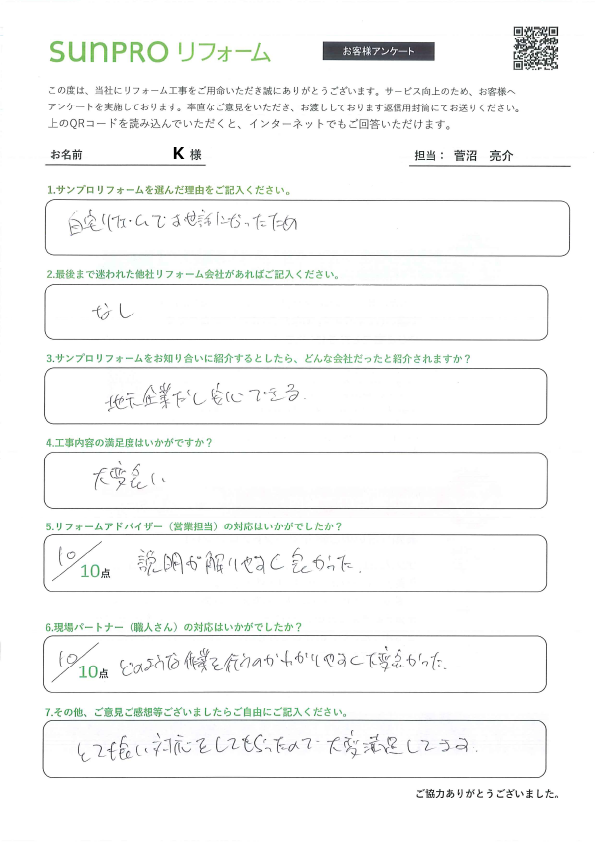 sunpro リフォーム
お客様アンケート
この度は、当社にリフォーム工事をご用命いただき誠にありがとうございます。サービス向上のため、お客様へ
アンケートを実施しております。率直なご意見をいただき、お渡ししております返信用封筒にてお送りください。
上のQRコードを読み込んでいただくと、インターネットでもご回答いただけます。
お名前 K 様 担当： 菅沼 亮介
1.サンプロリフォームを選んだ理由をご記入ください。
自宅リフォームでお世話になったため
2.最後まで迷われた他社リフォーム会社があればご記入ください。
なし
3.サンプロリフォームをお知り合いに紹介するとしたら、どんな会社だったと紹介されますか？
地元企業だし安心できる.
4.工事内容の満足度はいかがですか？
大変良い
5.リフォームアドバイザー（営業担当）の対応はいかがでしたか？
10/10点 説明が解りやすく良かった.
6.現場パートナー（職人さん）の対応はいかがでしたか？
10/10点 どのような作業を行うのかわかりやすく大変良かった.
7.その他、ご意見ご感想等ございましたらご自由にご記入ください。
とても良い対応をしてもらったので大変満足してます.
ご協力ありがとうございました。